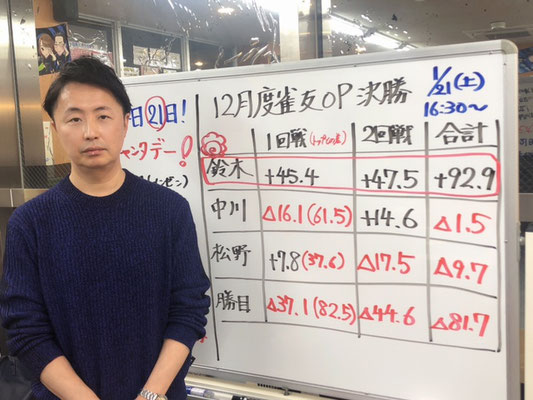 日21日!
12月度雀友OP 決勝
1/21(土)
16:30~
1回戦
2回戦
合計
鈴木
+45.4
+47.5
+92.9
中川
△16.1(61.5)
+14.6
△1.5
松野
+7.8(37.6)
△17.5
△9.7
勝目
△37.1(82.5)
△44.6
△81.7